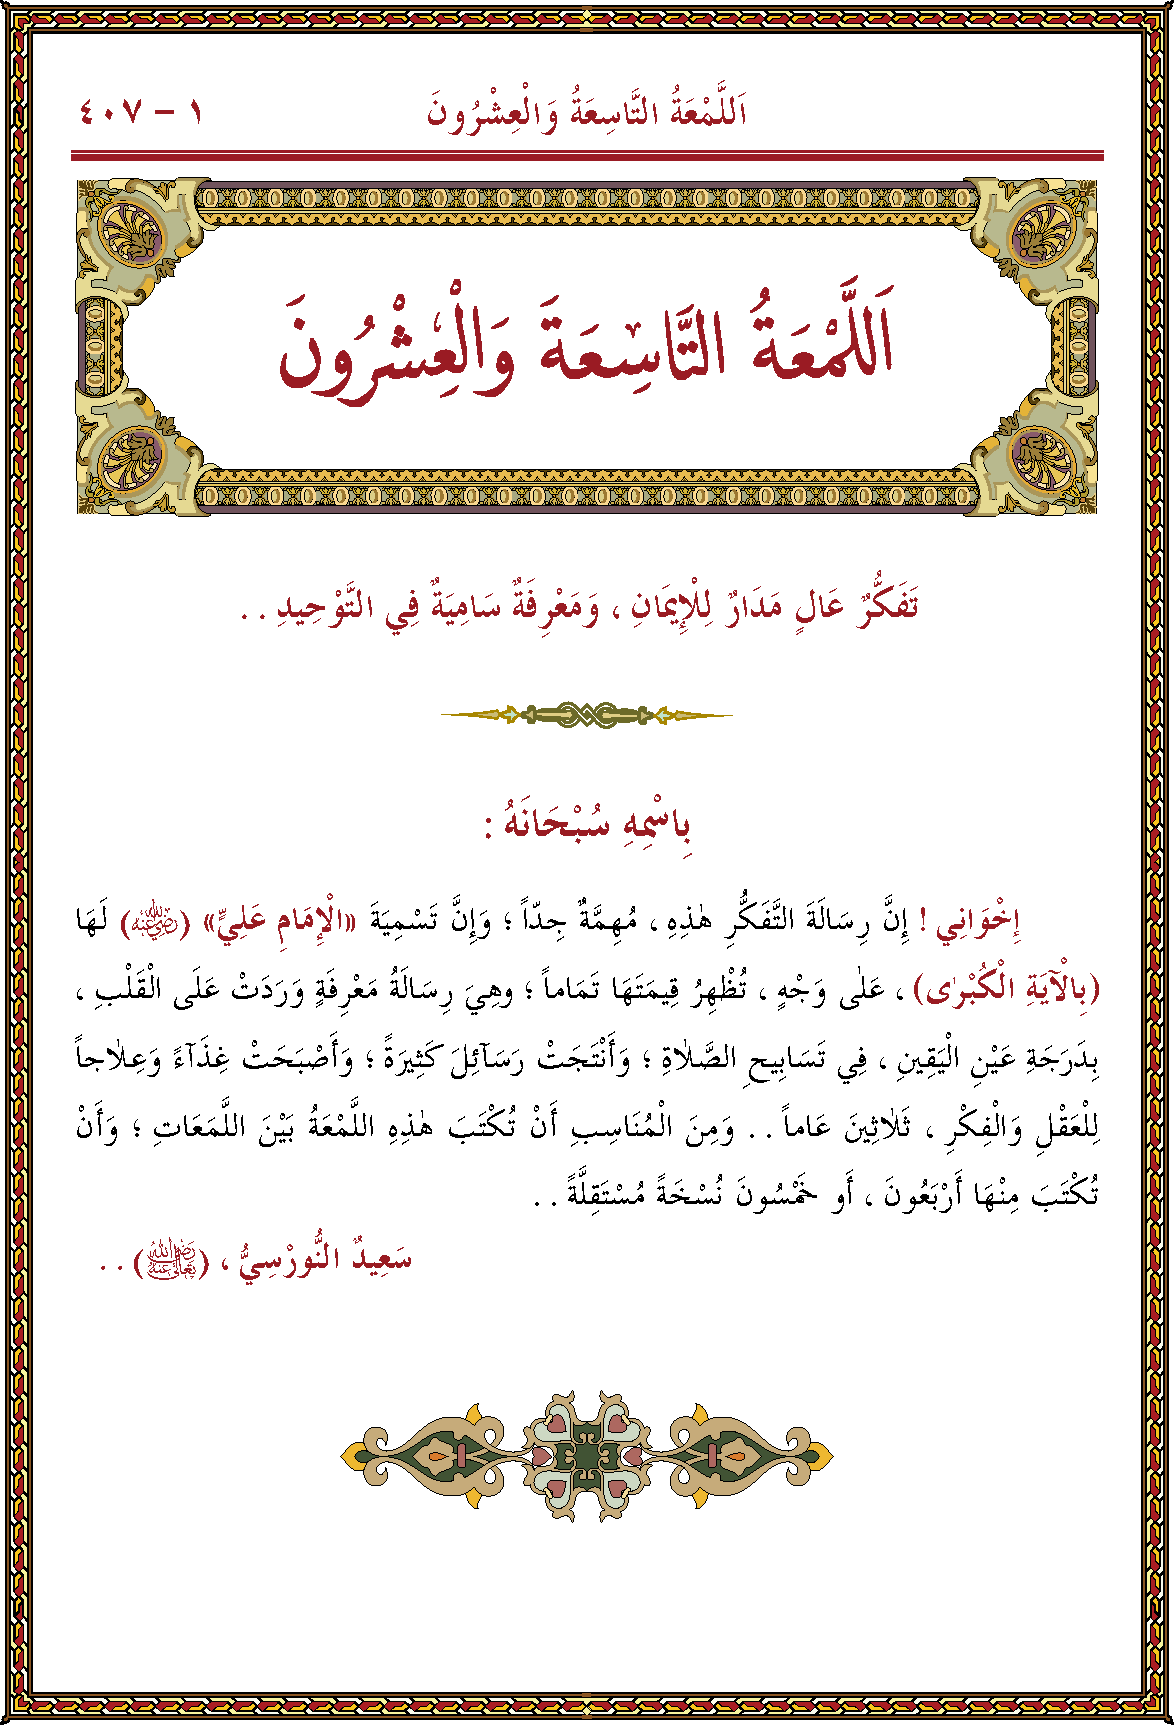 اَللَّمْعَةُ التَّاسِعَةُ وَالْعِشْرُونَ ١ – ٤٠٧
اَللَّمْعَةُ التَّاسِعَةَ وَالْعِشْرُونَ
تَفَكُّرٌ عَالٍ مَدَارٌ لِلْإِيمَانِ ، وَمَعْرِفَةٌ سَامِيَةٌ فِي التَّوْحِيدِ . .
بِاسْمِهِ سُبْحَانَهُ :
إِخْوَانِي ! إِنَّ رِسَالَةَ التَّفَكُّرِ هٰذِهِ ، مُهِمَّةٌ جِدّاً ؛ وَإِنَّ تَسْمِيَةَ «الْإِمَامِ عَلِيٍّ» (رضي الله عنه) لَهَا
(بِالْآيَةِ الْكُبْرٰى) ، عَلٰى وَجْهٍ ، تُظْهِرُ قِيمَتَهَا تَمَاماً ؛ وهِيَ رِسَالَةُ مَعْرِفَةٍ وَرَدَتْ عَلَى الْقَلْبِ ،
بِدَرَجَةِ عَيْنِ الْيَقِينِ ، فِي تَسَابِيحِ الصَّلَاةِ ؛ وَأَنْتَجَتْ رَسَآئِلَ كَثِيرَةً ؛ وَأَصْبَحَتْ غِذَآءً وَعِلَاجاً
لِلْعَقْلِ وَالْفِكْرِ ، ثَلَاثِينَ عَاماً . . وَمِنَ الْمُنَاسِبِ أَنْ تُكْتَبَ هٰذِهِ اللَّمْعَةُ بَيْنَ اللَّمَعَاتِ ؛ وَأَنْ
تُكْتَبَ مِنْهَا أَرْبَعُونَ ، أَو خَمْسُونَ نُسْخَةً مُسْتَقِلَّةً . .
سَعِيدٌ النُّورْسِيُّ ، (رضي الله تعالى عنه) . .